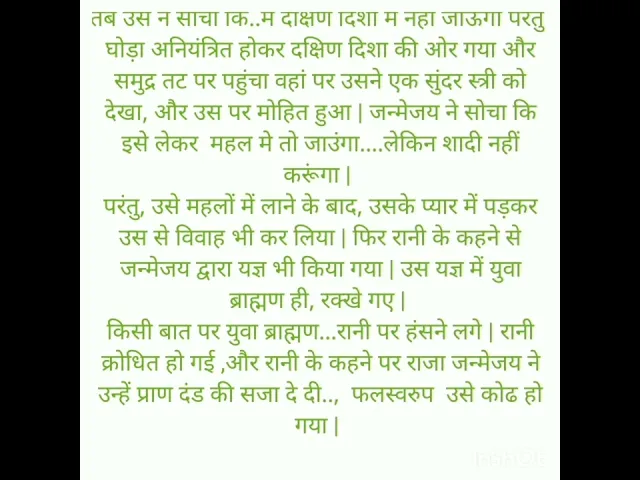 तब उस ने सोचा कि..मैं दक्षिण दिशा में नहीं जाऊंगा परंतु
घोड़ा अनियंत्रित होकर दक्षिण दिशा की ओर गया और
समुद्र तट पर पहुंचा वहां पर उसने एक सुंदर स्त्री को
देखा, और उस पर मोहित हुआ | जन्मेजय ने सोचा कि
इसे लेकर महल मे तो जाउंगा....लेकिन शादी नहीं
करूंगा |
परंतु, उसे महलों में लाने के बाद, उसके प्यार में पड़कर
उस से विवाह भी कर लिया | फिर रानी के कहने से
जन्मेजय द्वारा यज्ञ भी किया गया | उस यज्ञ में युवा
ब्राह्मण ही, रक्खे गए |
किसी बात पर युवा ब्राह्मण...रानी पर हंसने लगे | रानी
क्रोधित हो गई ,और रानी के कहने पर राजा जन्मेजय ने
उन्हें प्राण दंड की सजा दे दी.., फलस्वरुप उसे कोढ हो
गया |